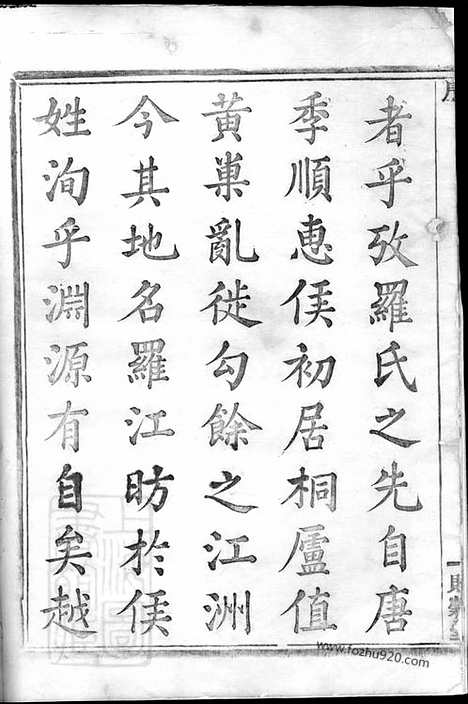 者乎攷羅氏之先自唐
季順惠侯初居桐廬值
黃巢亂徙勾餘之江洲
今其地名羅江昉於侯
姓洵乎淵源有自矣越
序
www.fozhu920.com